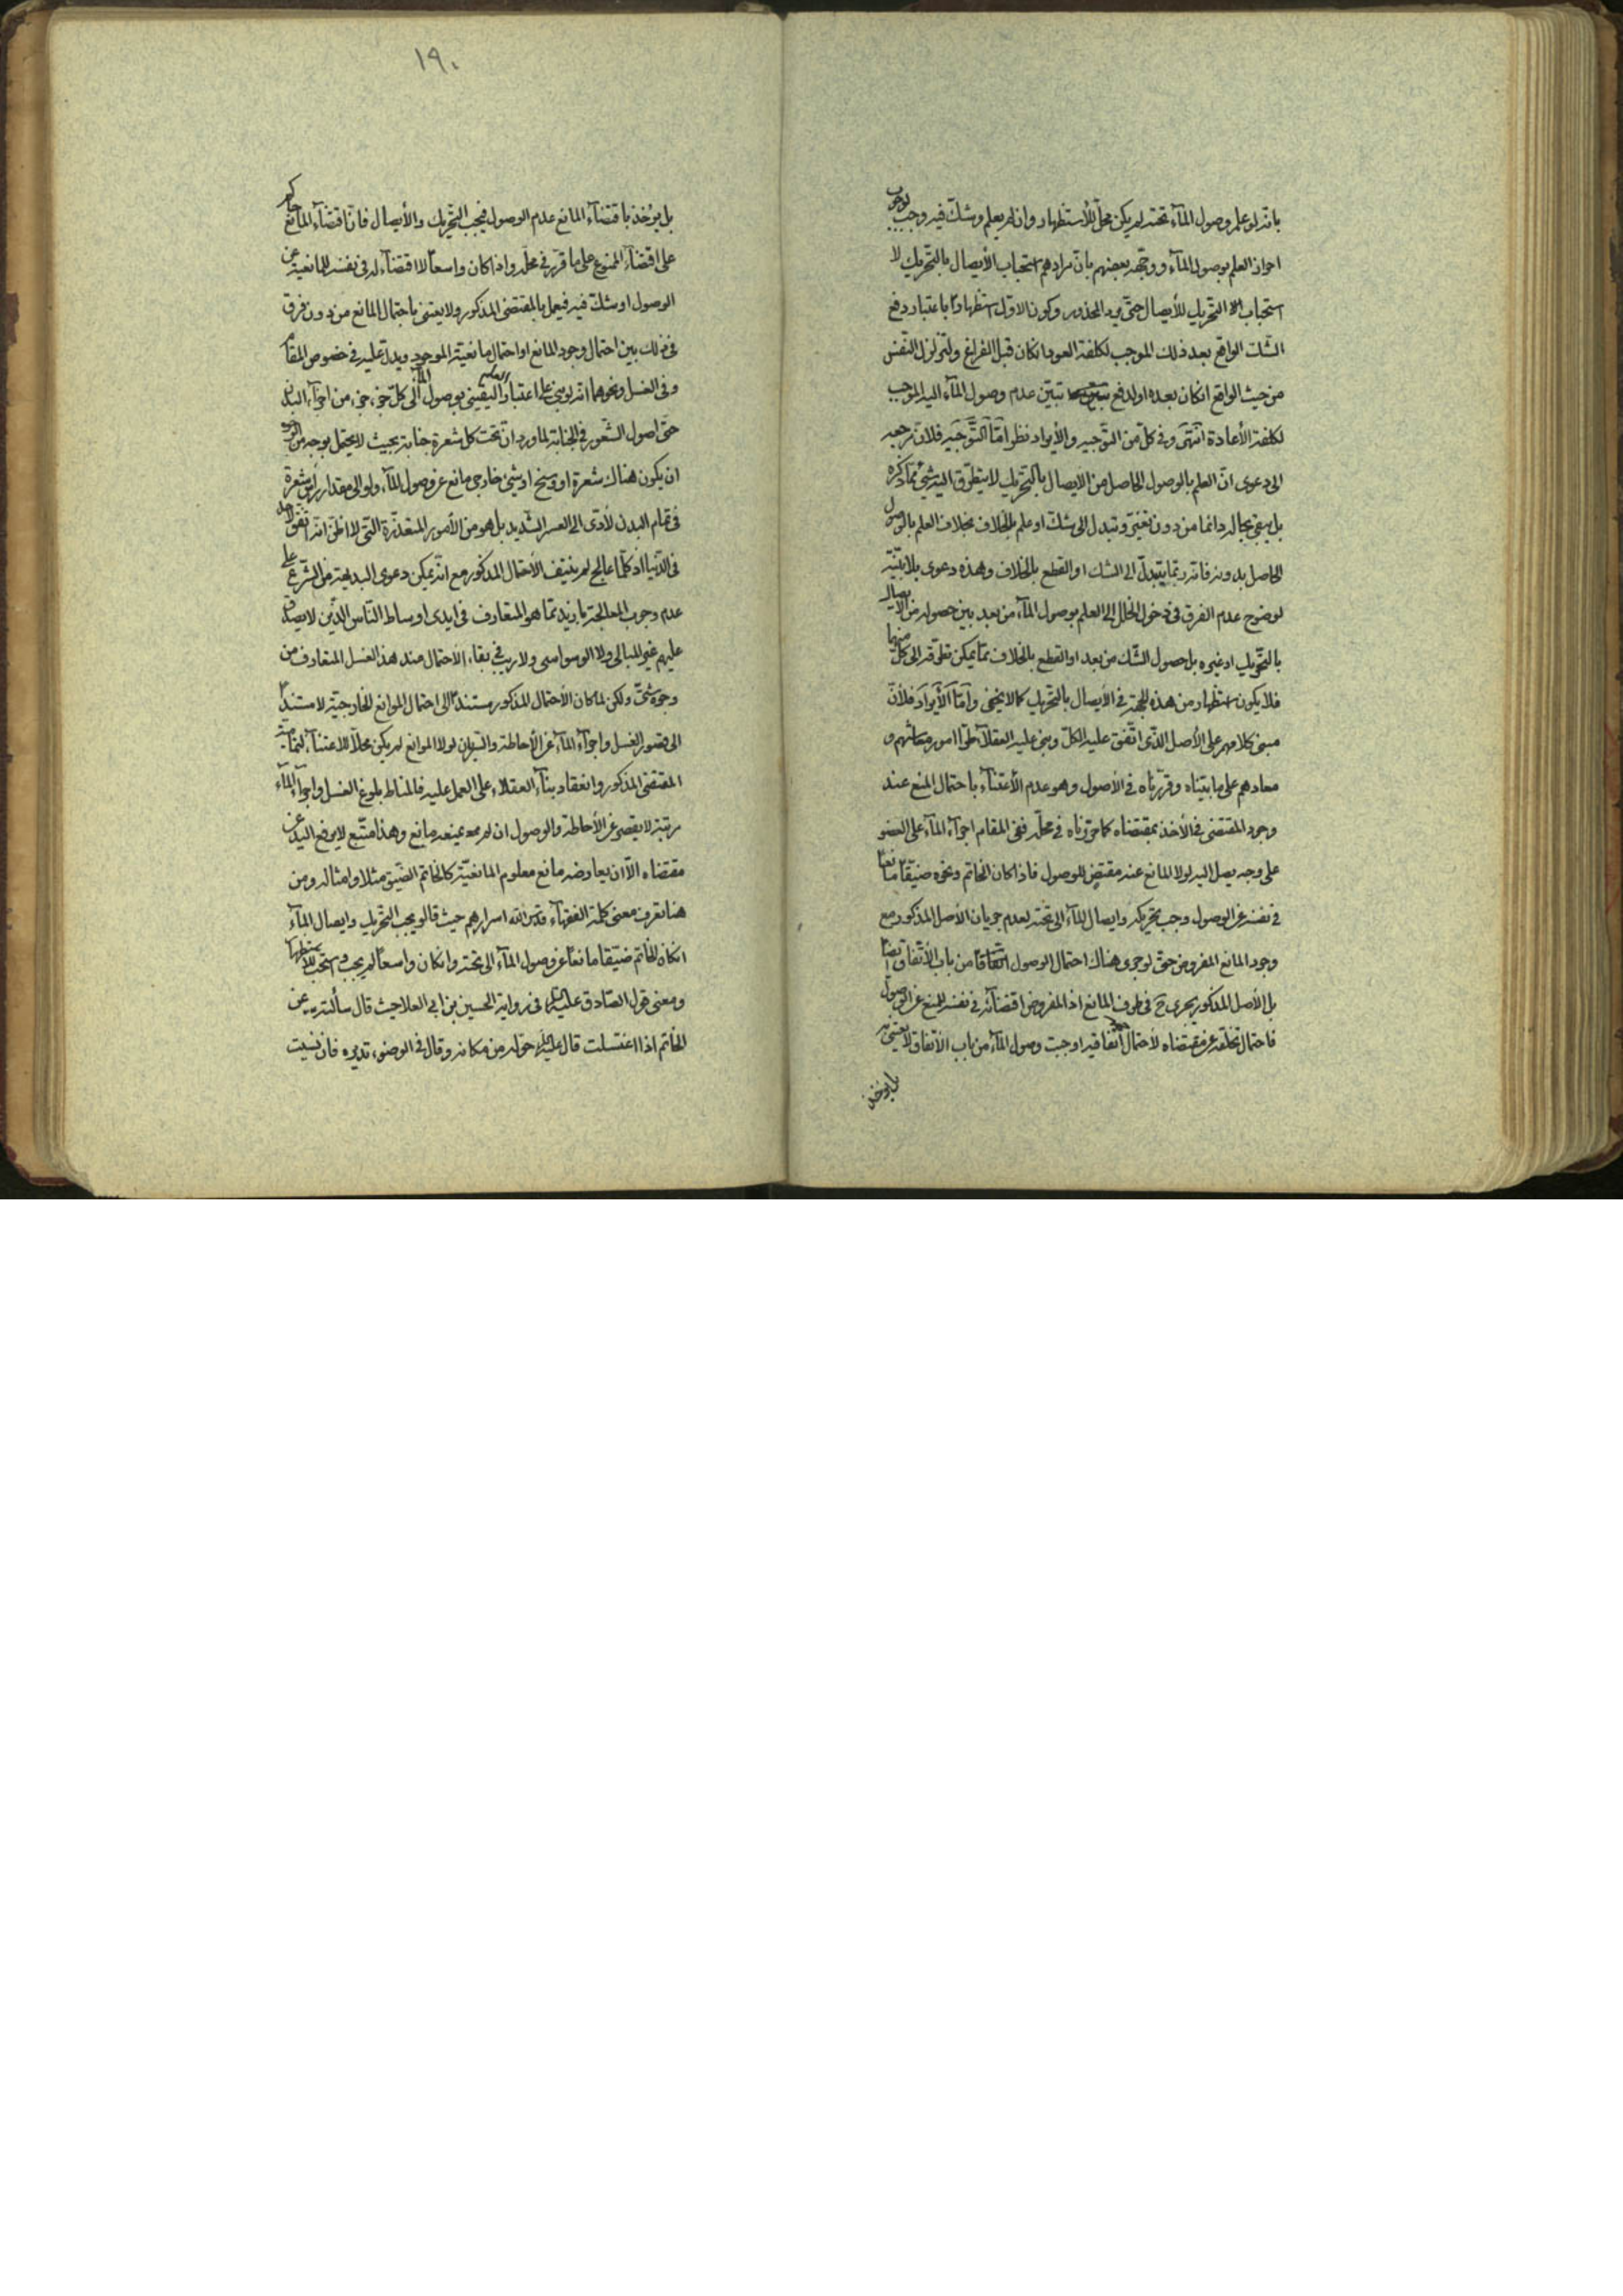 بانه لو علم وصول المآء تحته لم يكن محلّ للأستظهار وان لم يعلم وشكّ فيه وجب لوجوب
احراز العلم بوصول المآء ووجّهه بعضهم بانّ مرادهم استحباب الأيصال بالتحريك لا
استحباب التحريك للأيصال حتّى يرد المحذور وكون الاوّل استظهارا باعتبار دفع
الشك الواقع بعد ذلك الموجب لكلفة العود انكان قبل الفراغ ولتزلزل النفس
من حيث الواقع انكان بعده او لدفع تبيّن عدم وصول المآء اليه الموجب
لكلفة الأعادة انتهى وفى كلّ من التوجيه والأيراد نظر امّا التّوجيه فلانّ مرجعه
الى دعوى انّ العلم بالوصول الحاصل من الأيصال بالتحريك لا يتطرّق اليه شئ ممّا ذكره
بل يبقى بحاله دائما من دون تغيّر وتبدل الى شكّ او علم بالخلاف بخلاف العلم بالوصول
الحاصل بدونه فانه ربما يتبدّل الى الشك او القطع بالخلاف وهذه دعوى بلا بيّنة
لوضوح عدم الفرق فى دخول الخلل الى العلم بوصول المآء من بعد بين حصوله من الأيصال
بالتحريك او غيره بل حصول الشّك من بعد او القطع بالخلاف ممّا يمكن تطرقه الى كلّ منهما
فلا يكون استظهار من هذه الجهة فى الأيصال بالتحريك كما لا يخفى وامّا الأيراد فلأنّ
مبنى كلامهم على الأصل الذّى اتّفق عليه الكلّ وبنى عليه العقلآء طرّا امور معاشهم و
معادهم على ما بيّناه وقرّرناه فى الأصول وهو عدم الأعتنآء باحتمال المنع عند
وجود المقتضى فى الأخذ بمقتضاه كما حرّرناه فى محلّه ففى المقام اجرآء المآء على العضو
على وجه يصل اليه لولا المانع عنه مقتضٍ للوصول فاذا كان الخاتم ونحوه ضيّقا مانعا
فى نفسه عن الوصول وجب تحريكه وايصال المآء الى تحته لعدم جريان الأصل المذكور مع
وجود المانع المفروض حتّى لو جرى هناك احتمال الوصول اتّفاقا من باب الأتّفاق ايضا
بل الأصل المذكور يجرى ح فى طرف المانع اذ المفروض اقتضائه فى نفسه للمنع عن الوصول
فاحتمال تخلّفه عن مقتضاه لأحتمال اتفاقيه اوجبت وصول المآء من باب الأتّفاق لا يعتنى به
بل يؤخذ
١٩٠
بل يؤخذ باقتضآء المانع عدم الوصول فيجب التّحريك والأيصال فانّ اقتضآء المانع حاكم
على اقتضآء الممنوع على ما قرّر فى محلّه واذا كان واسعا لا اقتضآء له فى نفسه للمانعيّة عن
الوصول او شكّ فيه فيعمل بالمقتضى المذكور ولا يعتنى باحتمال المانع من دون فرق
فى ذلك بين احتمال وجود المانع او احتمال مانعيّة الموجود ويدل عليه فى خصوص المقام
وفى الغسل ونحوهما انه لو بنى على اعتبار العلم اليقينى بوصول المآء الى كلّ جزء جزء من اجزآء البدن
حتّى اصول الشّعور فى الجنابة لما ورد انّ تحت كل شعرة جنابة بحيث لا يحتمل بوجه من الوجوه
ان يكون هناك شعرة او وسخ او شئ خارجى مانع عن وصول المآء ولو الى مقدار رأس شعرة
فى تمام البدن لأدّى الى العسر الشّديد بل هو من الأمور المتعذّرة التّى لا اظنّ انّه اتفق لأحد
فى الدّنيا اذ كلّما عالج لم ينتف الأحتمال المذكور مع انّه يمكن دعوى البديهة من الشّرع على
عدم وجوب المعالجة بازيد ممّا هو المتعارف فى ايدى اوساط النّاس الذّين لا يصدق
عليهم غير المبالى ولا الوسواسى ولا ريب فى بقاء الأحتمال عند هذا الغسل المتعارف من
وجوه شتّى ولكن لما كان الأحتمال المذكور مستندا الى احتمال الموانع الخارجيّة لا مستندا
الى قصور الغسل واجرآء المآء عن الأحاطة والسّريان لولا الموانع لم يكن محلاّ للاعتنآء لتماميّة
المقتضى المذكور وانعقاد بنآء العقلاء على العمل عليه فالمناط بلوغ الغسل واجرآء المآء
مرتبة لا يقصر عن الأحاطة والوصول ان لم يمنعه مانع وهذا متّبع لا يرفع اليد عن
مقتضاه الاّ ان يعارضه مانع معلوم المانعيّة كالخاتم الضّيق مثلا وامثاله ومن
هنا تعرف معنى كلمة الفقهآء قدّس الله اسرارهم حيث قالو يجب التّحريك وايصال المآء
انكان الخاتم ضيّقا مانعا عن وصول المآء الى تحته وانكان واسعا لم يجب واستحبّ للاستظهار
ومعنى قول الصّادق عليه السّلام فى رواية الحسين بن ابى العلا حيث قال سألته عن
الخاتم اذا اغتسلت قال عليه السلم حوّله من مكانه وقال فى الوضوء تديره فان نسيت